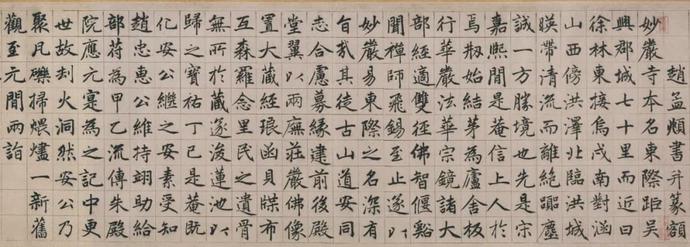 趙孟頫書并篆額
妙嚴寺本名東際距吳
興郡城七十里而近曰
徐林東接烏戍南對涵
山西傍洪澤北臨洪城
暎帶清流而離絕嚻塵
誠一方勝境也先是宋
嘉熙間是菴信上人於
焉刱始結茅為廬舍板
行華嚴法華宗鏡諸大
部經適雙徑佛智偃谿
聞禪師飛錫至止遂以
妙嚴易東際之名深有
旨哉其徒古山道安同
志合慮募緣建前後殿
堂翼以兩廡莊嚴佛像
置大藏經琅函貝牒布
互森羅念里民之遺骨
無所於藏遂浚蓮池以
歸之寶祐丁巳是菴既
化安公繼之安素受知
趙忠惠公維持翊助給
部苻為甲乙流傳朱殿
院應元寔為之記中更
世故刧火洞然安公乃
聚凡礫掃煨燼一新舊
觀至元間兩詣